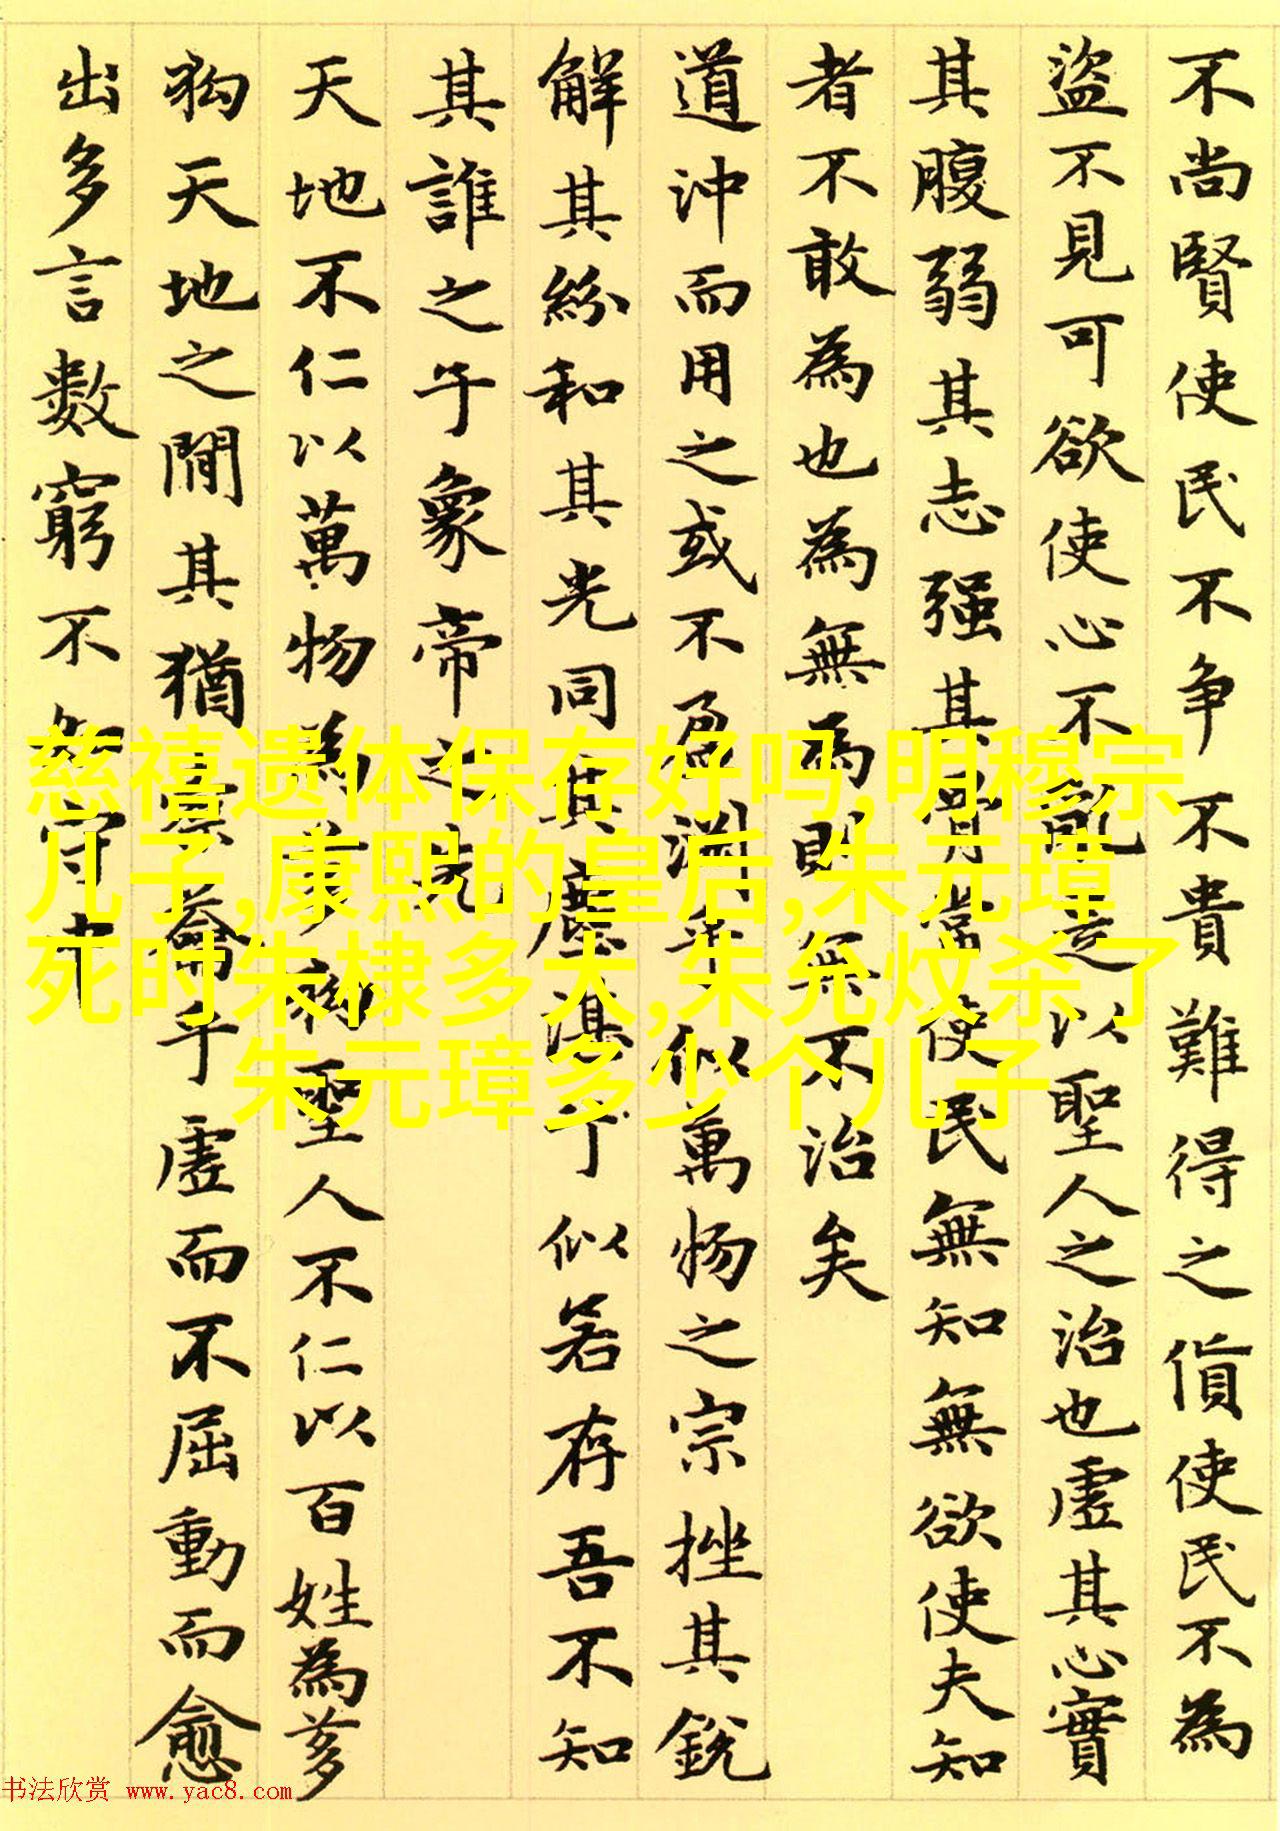 不尚賢使民不争不貴難得之貨使民不為
盜不見可欲使心不亂是以聖人之治也虛其心實
其腹弱其志强其骨常使民無知無欲使夫知
者不敢為也為無為則無不治矣
道沖而用之或不盈淵乎似萬物之宗挫其銳
解其紛和其光同其塵湛乎似若存吾不知
其誰之子象帝之先
天地不仁以萬物為芻狗聖人不仁以百姓為芻
狗天地之間其猶橐籥乎虛而不屈動而愈
出多言數窮不如守中
慈禧遗体保存好吗,明穆宗
儿子,康熙的皇后,朱元璋
死时朱棣多大,朱允炆杀了
朱元璋多少个儿子
书法欣赏 www.yac8.com